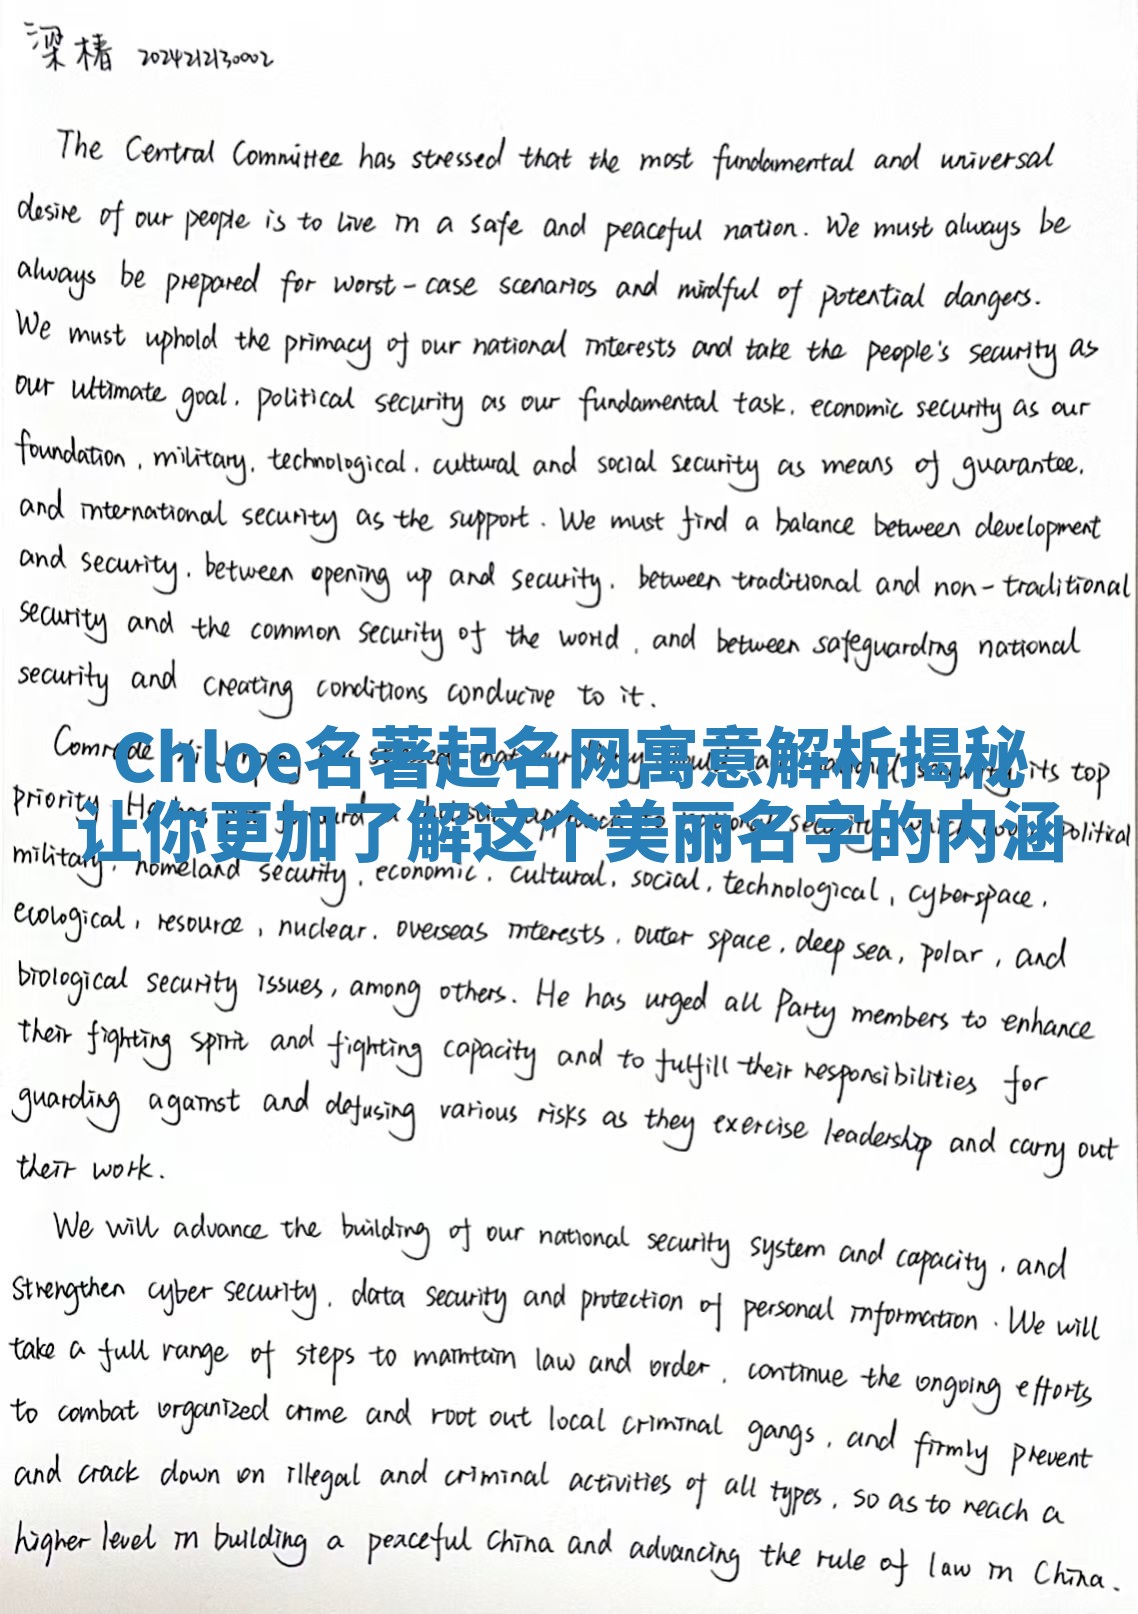 梁椿 2024212130002
The Central Committee has stressed that the most fundamental and universal
desire of our people is to live in a safe and peaceful nation. We must always be
always be prepared for worst-case scenarios and mindful of potential dangers.
We must uphold the primacy of our national interests and take the people's security as
our ultimate goal, political security as our fundamental task, economic security as our
foundation, military, technological, cultural and social security as means of guarantee,
and international security as the support. We must find a balance between development
and security, between opening up and security, between traditional and non-traditional
security and the common security of the world, and between safeguarding national
security and creating conditions conducive to it.
Comrade its top
Chloe名著起名网寓意解析揭秘
priority political
让你更加了解这个美丽名字的内涵
military, homeland security, economic, cultural, social, technological, cyberspace,
ecological, resource, nuclear, overseas interests, outer space, deep sea, polar, and
biological security issues, among others. He has urged all Party members to enhance
their fighting spirit and fighting capacity and to fulfill their responsibilities for
guarding against and defusing various risks as they exercise leadership and carry out
their work.
We will advance the building of our national security system and capacity, and
strengthen cyber security, data security and protection of personal information. We will
take a full range of steps to maintain law and order, continue the ongoing efforts
to combat organized crime and root out local criminal gangs, and firmly prevent
and crack down on illegal and criminal activities of all types, so as to reach a
higher level in building a peaceful China and advancing the rule of law in China.